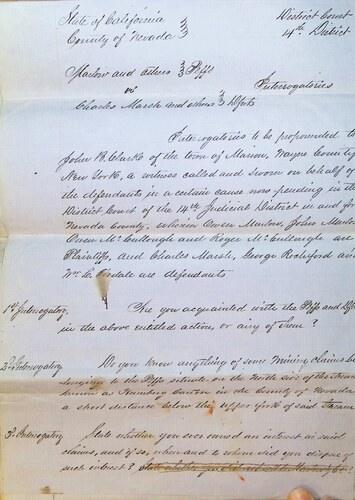 State of California } District Court
County of Nevada } 14th District
Marlow and others } Plffs
vs Interrogatories
Charles Marsh and others } Defts
Interrogatories to be propounded to
John B. Clark of the town of Marion, Wayne County
New York, a witness called and sworn on behalf of
the defendants in a certain cause now pending in the
District Court of the 14th Judicial District in and for
Nevada County, wherein Owen Marlow, John Marlow
Owen McCullough and Roger McCullough are
Plaintiffs, and Charles Marsh, George Rocheford and
Wm C. are defendants
1st Interrogatory, Are you acquainted with the Plffs and Defts
in the above entitled action, or any of them?
2d Interrogatory Do you know anything of some mining claims be
longing to the Plffs situate on the North side of the stream
known as Canon in the County of Nevada
a short distance below the upper fork of said stream
3d Interrogatory State whether you ever owned an interest in said
claims, and if so, when and to whom did you dispose of
such interest?